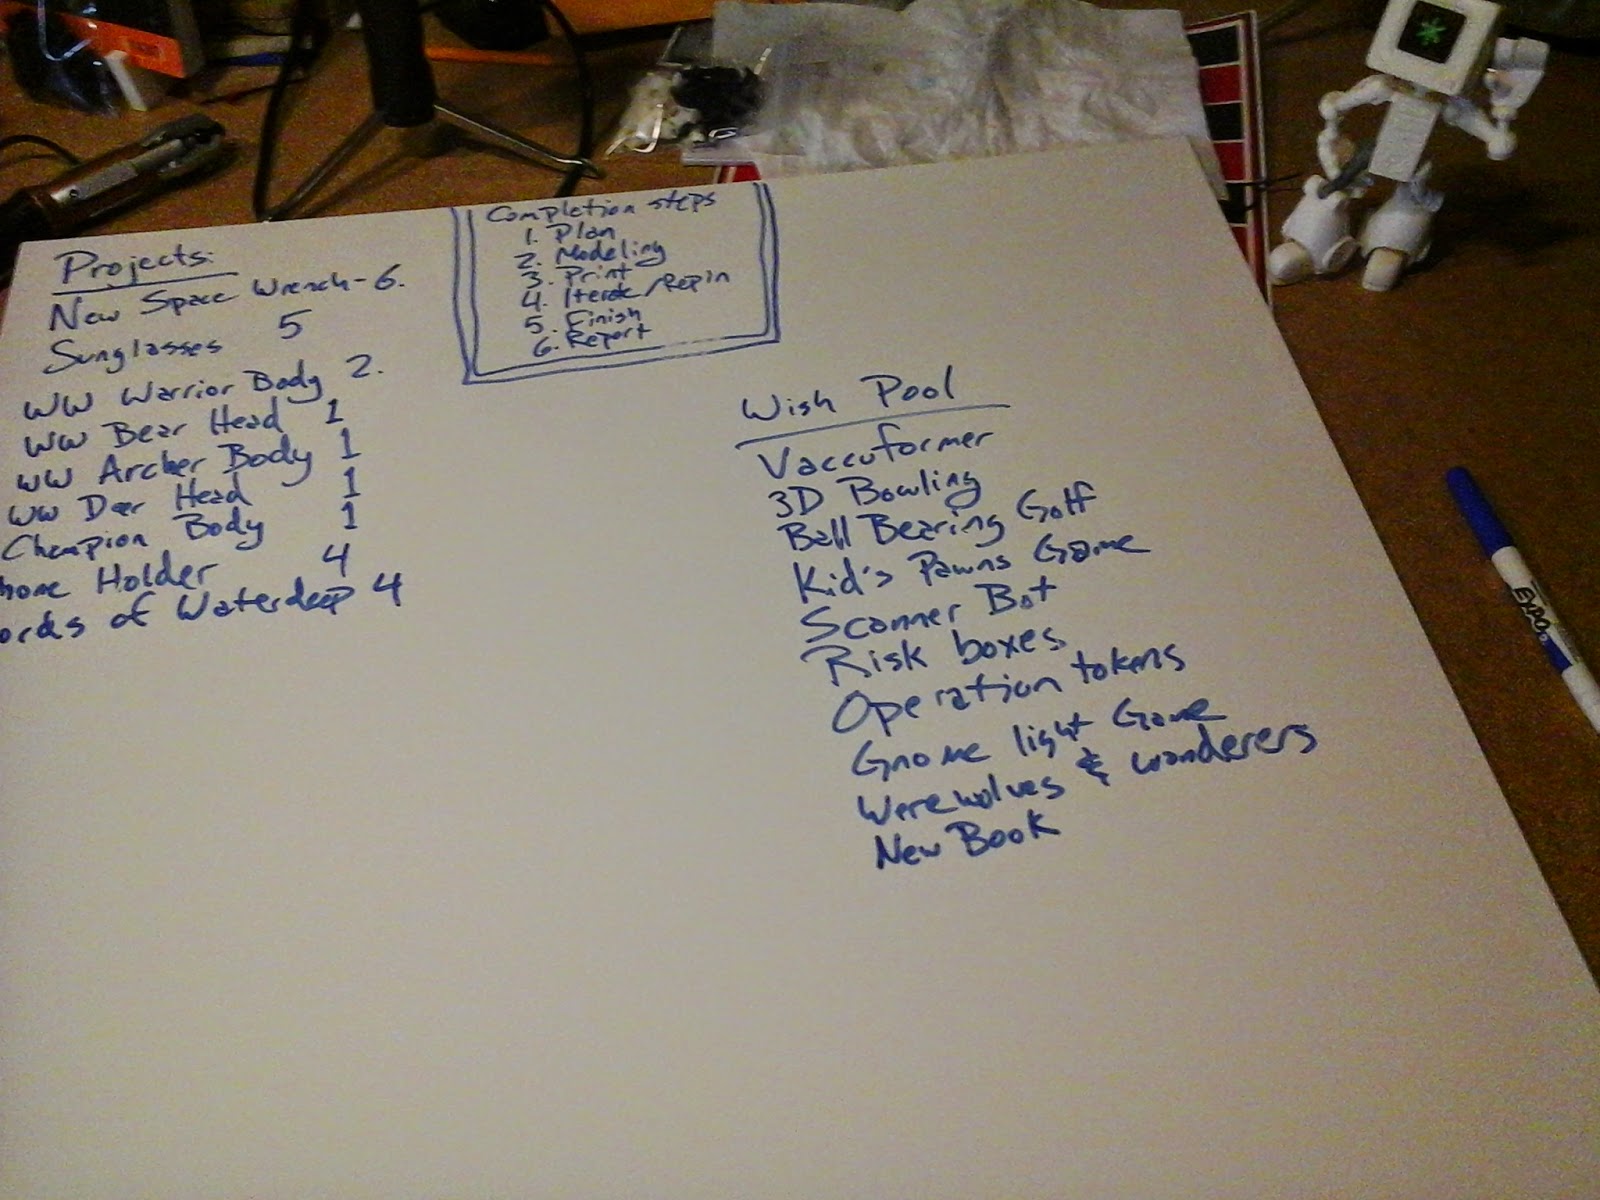 Projects:
New Space Wrench-6.
Sunglasses 5
WW Warrior Body 2.
WW Bear Head 1
WW Archer Body 1
WW Deer Head 1
Champion Body 1
hone Holder 4
ords of Waterdeep 4
Completion steps
1. Plan
2. Modeling
3. Print
4. Iterate/Reprin
5. Finish
6. Report
Wish Pool
Vaccuformer
3D Bowling
Ball Bearing Golf
Kid's Pawns Game
Scanner Bot
Risk boxes
Operation tokens
Gnome light Game
Werewolves & wanderers
New Book
EXPO